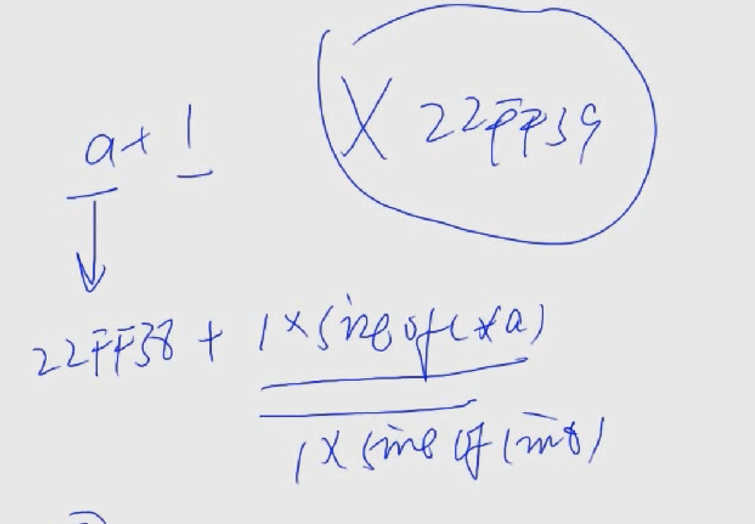 a+1
X 22FF39
22FF38 + 1×sizeof(*a)
1×sizeof(int)